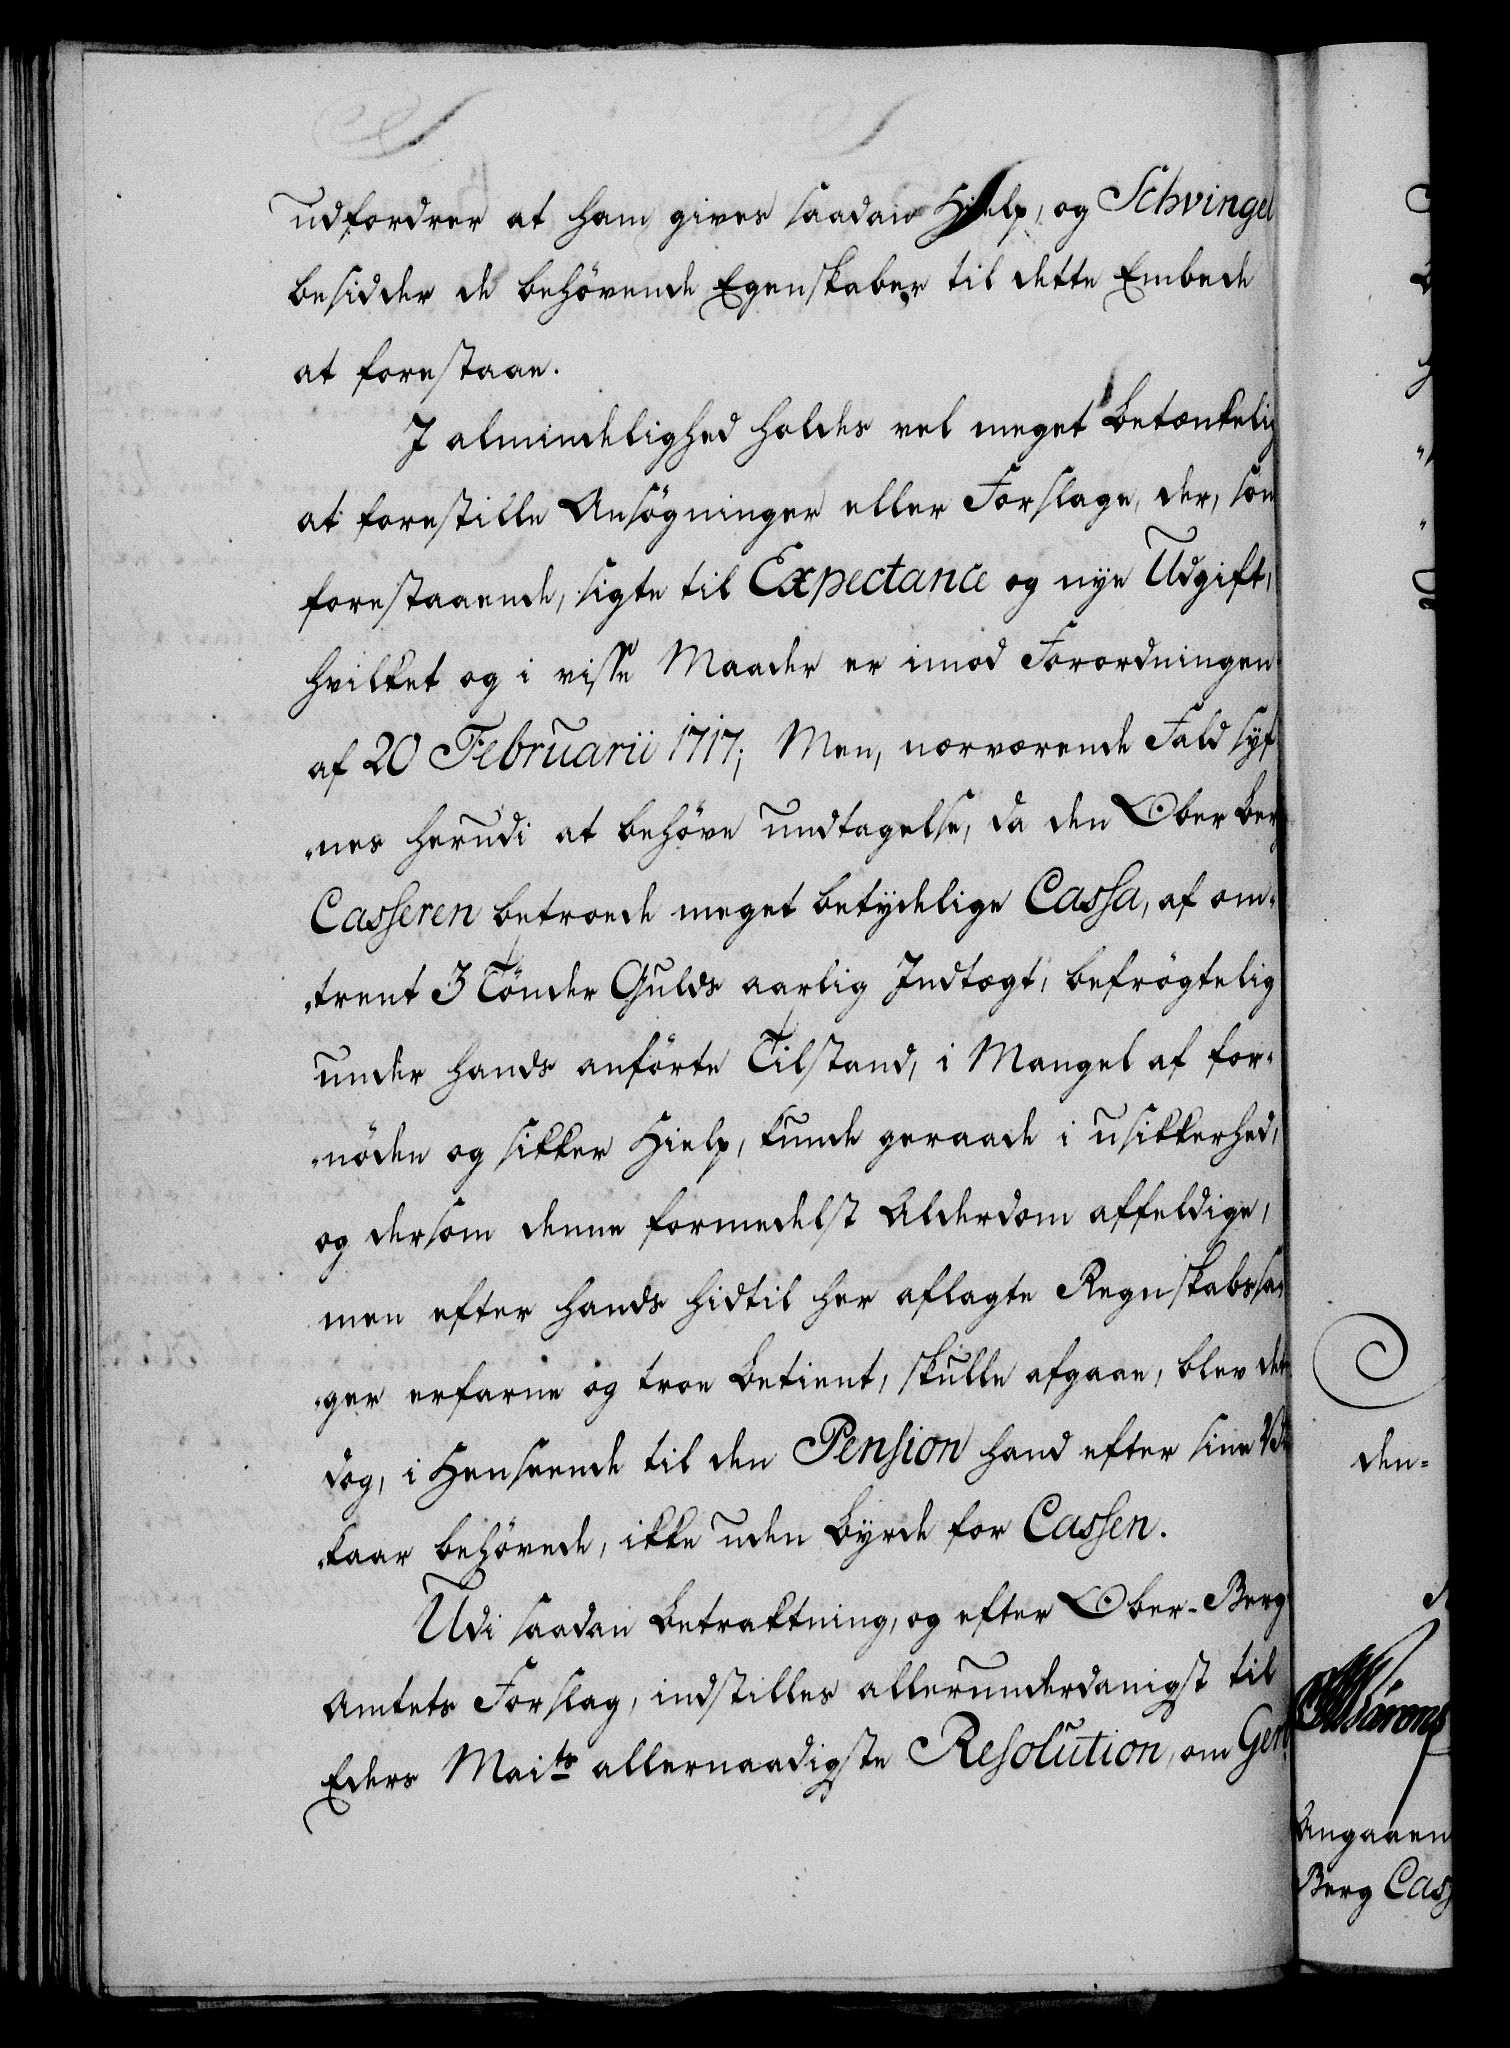 udfordrer at ham gives saadan Hielp, og Schvingel
besidder de behövende Egenskaber til dette Embede
at forestaae.
I almindelighed holdes vel meget betænkelig
at forestille Ansögninger eller Forslage, der, som
forestaaende, sigte til Expectance og nye Udgift,
hvilket og i visse Maader er imod Forordningen
af 20 Februarii 1717; Men, nærværende Fald syf-
„nes herudi at behöve undtagelse, da den Ober Berg
Casseren betroede meget betydelige Cassa, af om-
„trent 3 Tönder Gulds aarlig Indtægt, befrögtelig
under hands anförte Tilstand, i Mangel af for-
„nöden og sikker Hielp, kunde geraade i usikkerhed,
og dersom denne formedelst Alderdom affeldige,
men efter hands hidtil her aflagte Regnskabs saa
„ger erfarne og troe betient, skulle afgaae, blev det
dog, i Henseende til den Pension hand efter sine Vil
„kaar behövede, ikke uden Byrde for Cassen.
Udi saadan betraktning, og efter Ober-Berg
Amtets Forslag, indstilles allerunderdanigst til
Eders Maits allernaadigste Resolution, om Gerh
den-
Angaaen
Berg Cass